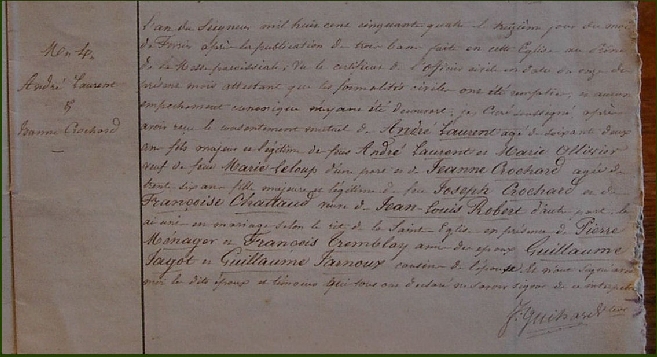 Mon 4e
André Laurent
&
Jeanne Crochard
L'an du Seigneur mil huit cent cinquante quatre le treizième jour du mois
de Février après la publication de trois bans faite en cette Eglise au Prône
de la Messe paroissiale, Vu le certificat de l'Officier civil en date du onze du
présent mois attestant que les formalités civiles ont été remplies, et aucun
empêchement canonique n'ayant été découvert, je Curé soussigné après
avoir reçu le consentement mutuel de André Laurent agé de soixante deux
ans fils majeur et légitime de feus André Laurent et Marie Ollivier
veuf de feue Marie Leloup d'une part et de Jeanne Crochard agée de
trente six ans fille majeure et légitime de feu Joseph Crochard et de
Françoise Chattaud veuve de Jean Louis Robert d'autre part les
ai unis en mariage selon le rit de la Sainte Eglise en présence de Pierre
Ménager et François Tremblay amis des époux Guillaume
Jagot et Guillaume Jarnoux cousins de l'épouse. Et n'ont signé avec
moi les dits époux et témoins qui tous ont déclaré ne savoir signer de ce
J. Guihard